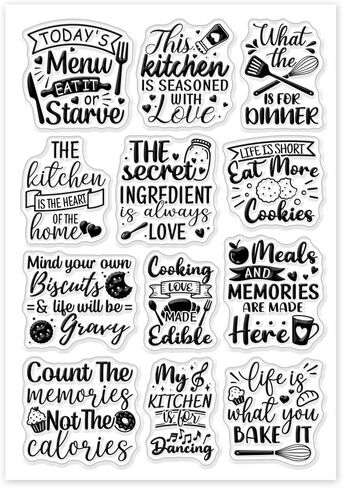 TODAY'S
Menu
EAT IT
or
Starve
This
kitchen
IS SEASONED
WITH
Love
What
the
IS FOR
DINNER
THE
kitchen
IS THE HEART
OF THE
home
THE
secret
INGREDIENT
is always
LOVE
LIFE IS SHORT
Eat More
Cookies
Mind your own
Biscuits
= & life will be =
Gravy
Cooking
LOVE
MADE
Edible
Meals
AND
MEMORIES
ARE MADE
Here
Count The
memories
Not The
calories
My
KITCHEN
is for
Dancing
life is
what you
BAKE IT